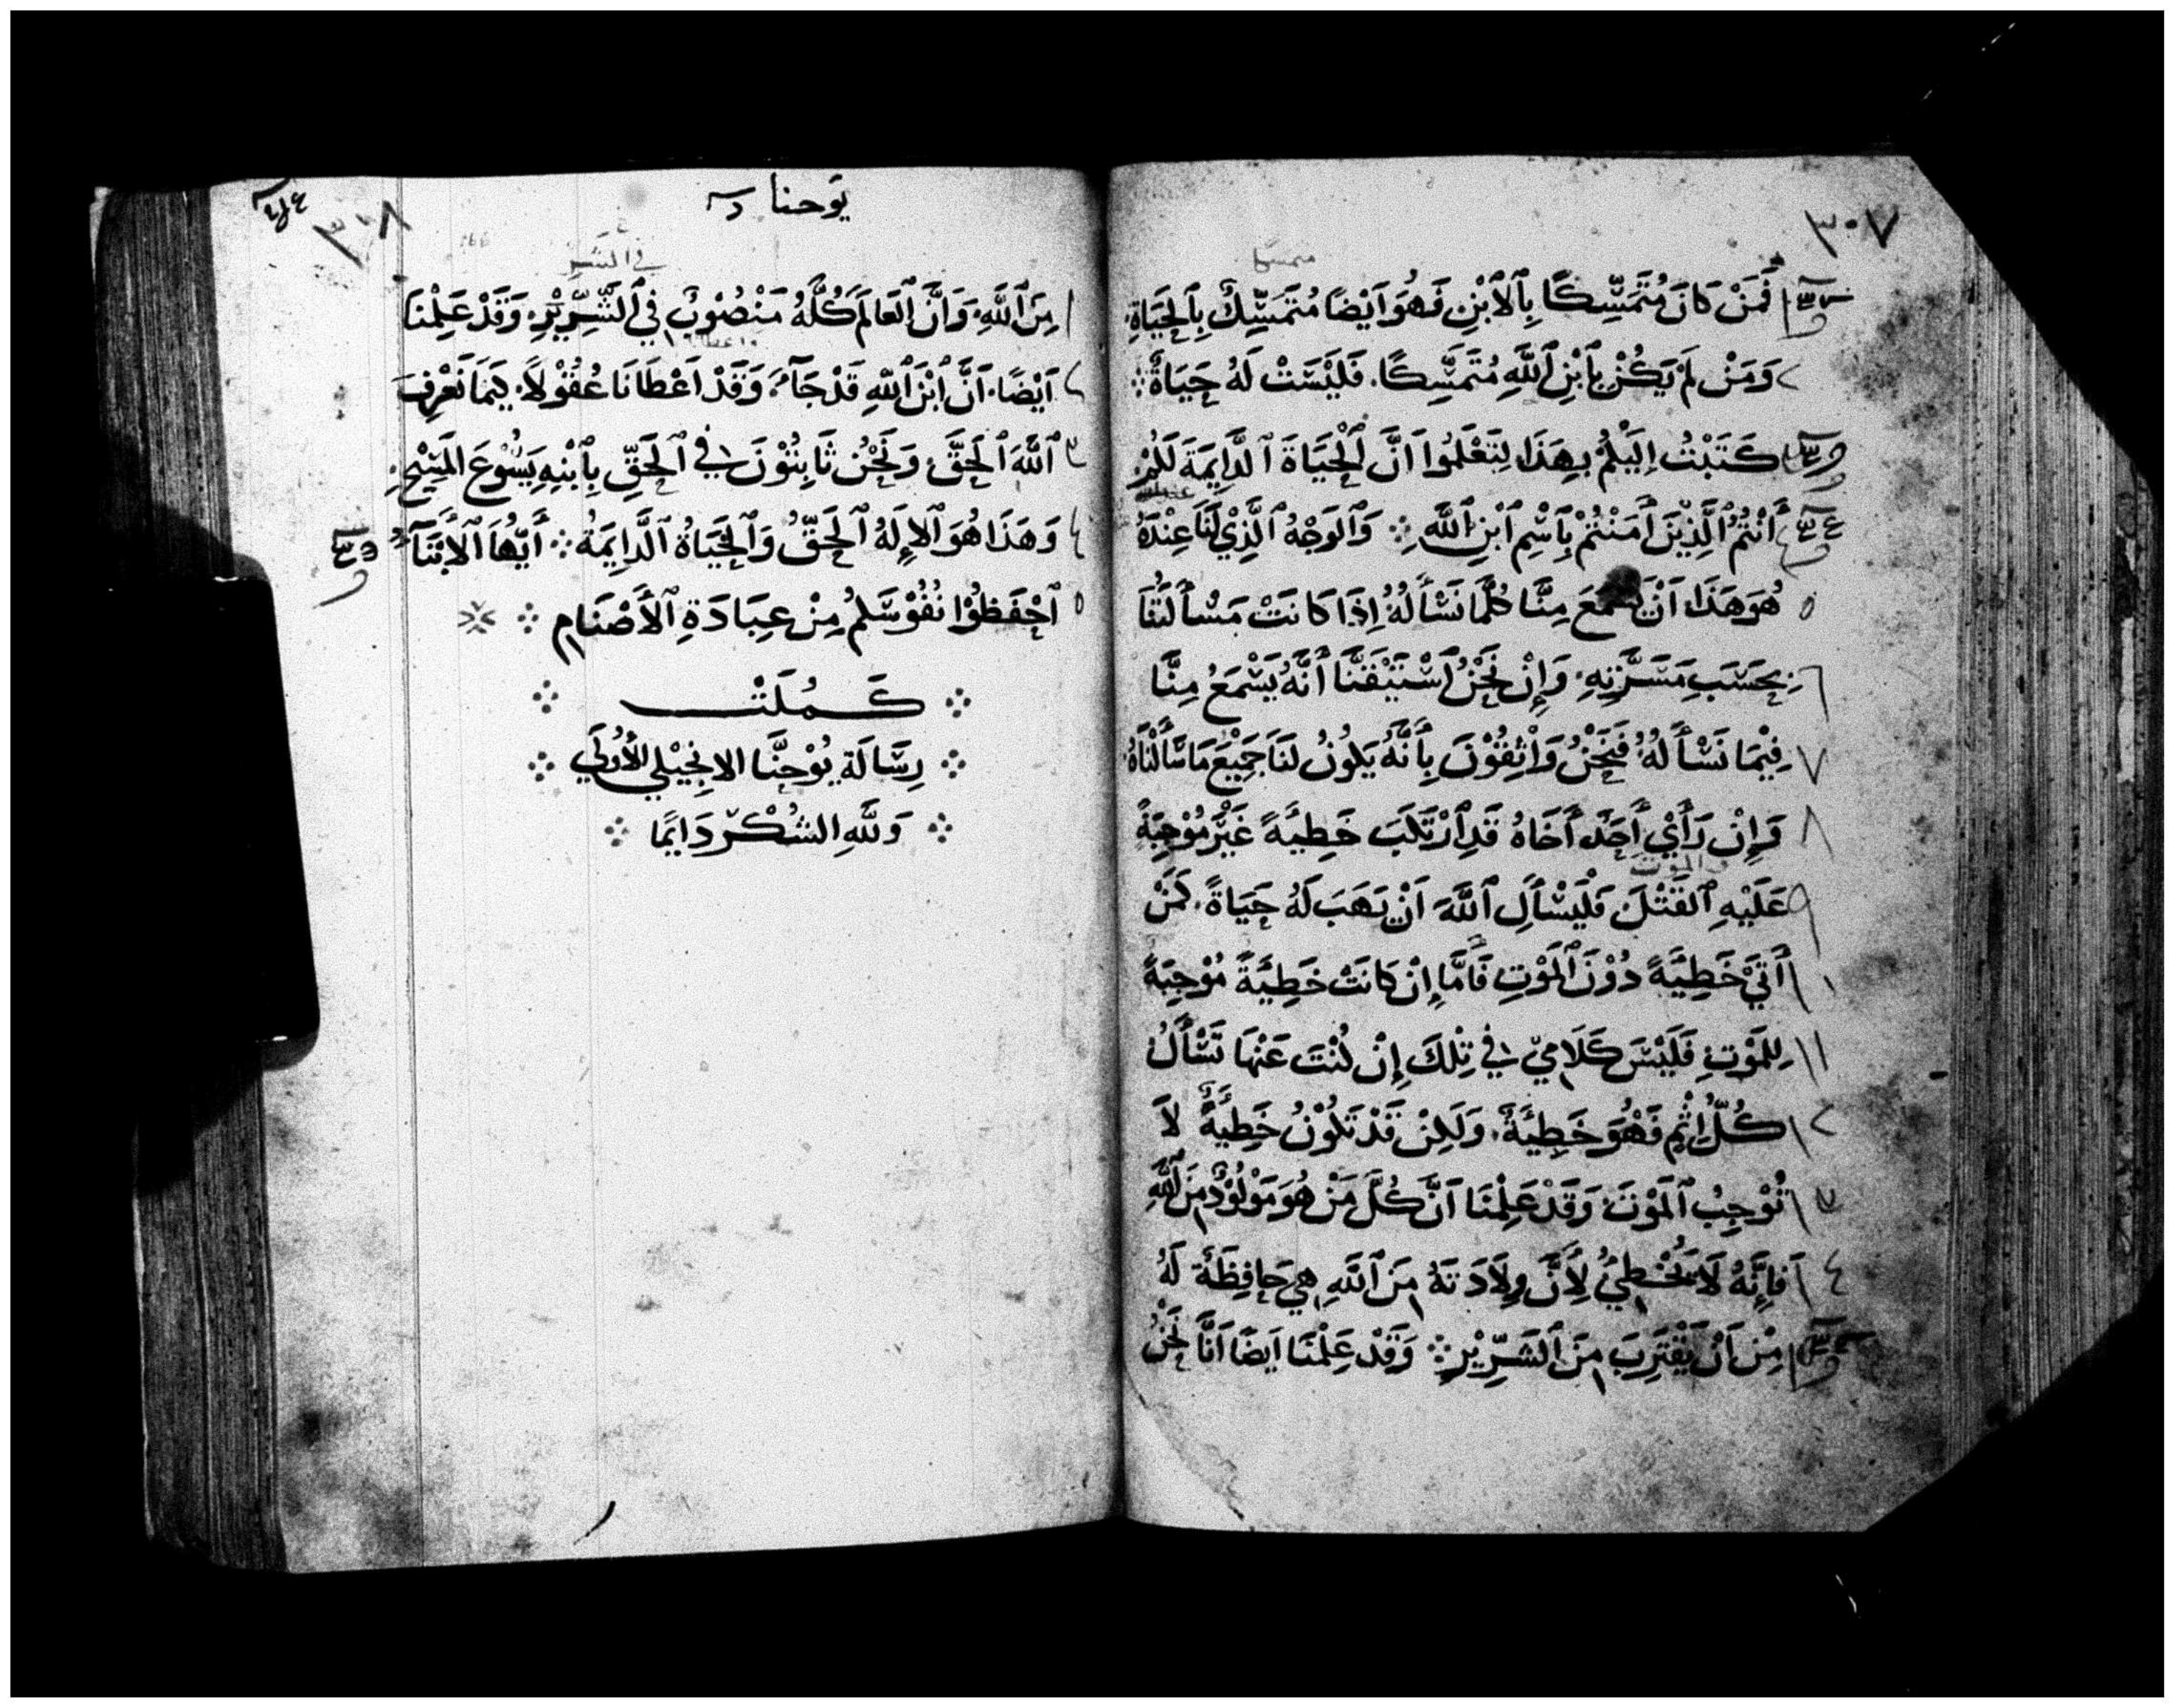 ٣٠٧
متمسكا
فَمَنْ كَانَ مُتَمَسِّكًا بِٱلٱبْنِ فَهُوَ اَيْضًا مُتَمَسِّكٌ بِٱلحَيَاةِ.
٢ وَمَنْ لَمْ يَكُنْ بِٱبْنِ ٱللَّهِ مُتَمَسِّكًا. فَلَيْسَتْ لَهُ حَيَاةٌ
كَتَبْتُ اِلَيْكُمْ بِهَذَا لِتَعْلَمُوا اَنَّ ٱلْحَيَاةَ ٱلدَّايِمَةَ لَكُمْ
أَنْتُمُ ٱلَّذِيْنَ أَمَنْتُمْ بِٱسْمِ ٱبْنِ ٱللَّهِ وَٱلوَجْهُ ٱلَّذِيْ لَنَا عِنْدَهُ
٥ هُوَ هَذَا اَنْ يَسْمَعَ مِنَّا كُلَّمَا نَسْأَلُهُ إِذَا كَانَتْ مَسْأَلَتُنَا
٦ بِحَسَبِ مَسَرَّتِهِ. وَإِنْ نَحْنُ ٱسْتَيْقَنَّا أَنَّهُ يَسْمَعُ مِنَّا
٧ فِيْمَا نَسْأَلُهُ فَنَحْنُ وَاثِقُوْنَ بِأَنَّهُ يَكُونُ لَنَا جَمِيْعَ مَا سَأَلْنَاهُ
٨ وَإِنْ رَأَيْ أَحَدٌ أَخَاهُ قَدِ ٱرْتَكَبَ خَطِيَّةً غَيْرَ مُوْجِبَةً
الموت
٩ عَلَيْهِ ٱلقَتْلَ فَلْيَسْأَلِ ٱللَّهَ اَنْ يَهَبَ لَهُ حَيَاةً. كَمَنْ
١٠ أَتَيْ خَطِيَّةً دُوْنَ ٱلمَوْتِ فَأَمَّا إِنْ كَانَتْ خَطِيَّةً مُوْجِبَةً
١١ لِلمَوْتِ فَلَيْسَ كَلَامِيْ فِي تِلْكَ إِنْ كُنْتَ عَنْهَا تَسْأَلُ
١٢ كُلُّ اِثْمٍ فَهُوَ خَطِيئَةٌ. وَلَكِنْ قَدْ تَكُوْنُ خَطِيئَةٌ لاَ
١٣ تُوْجِبُ ٱلمَوْتَ وَقَدْ عَلِمْنَا اَنَّ كُلَّ مَنْ هُوَ مَوْلُوْدٌ مِنَ ٱللَّهِ
١٤ فَإِنَّهُ لَا يُخْطِيُ لِأَنَّ وِلَادَتَهُ مِنَ ٱللَّهِ هِيَ حَافِظَةٌ لَهُ
مِنْ اَنْ يَقْتَرِبَ مِنَ ٱلشَّرِّيْرِ وَقَدْ عَلِمْنَا اَيضًا اَنَّا نَحْنُ
يوحنا
٣٠٨
166
في الشر
١ مِنَ ٱللَّهِ. وَاَنَّ ٱلعَالَمَ كُلَّهُ مَنْصُوْبٌ فِي ٱلشِّرِّيْرِ. وَقَدْ عَلِمْنَا
٢ اَيْضًا. اَنَّ ٱبْنَ ٱللَّهِ قَدْ جَآءَ وَقَدْ اَعْطَانَا عُقُوْلاً. كَيمَا نَعْرِفَ
٣ ٱللَّهَ ٱلحَقَّ. وَنَحْنُ ثَابِتُوْنَ فِي ٱلحَقِّ بِٱبْنِهِ يَسُوْعَ المَسِيْحِ.
٤ وَهَذَا هُوَ ٱلاِلَهُ ٱلحَقُّ وَٱلحَيَاةُ ٱلدَّايِمَةُ أَيُّهَا ٱلأَبْنَآءُ
٥ ٱحْفَظُوْا نُفُوْسَكُمْ مِنْ عِبَادَةِ ٱلأَصْنَامِ
كَمُلَتْ
رِسَالَة يُوْحَنَّا الانجِيْلي الأُوْلَي
وَللَّهِ الشُكْر دَايمًا